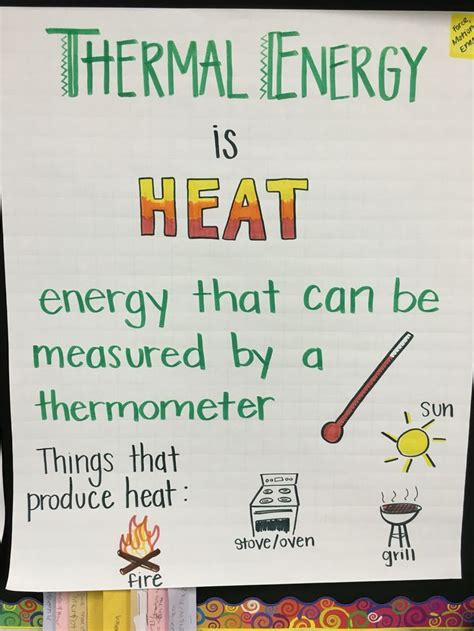 THERMAL ENERGY
Force,
Motion
is
HEAT
energy that can be
measured by a
thermometer
sun
Things that
produce heat:
fire
stove/oven
grill